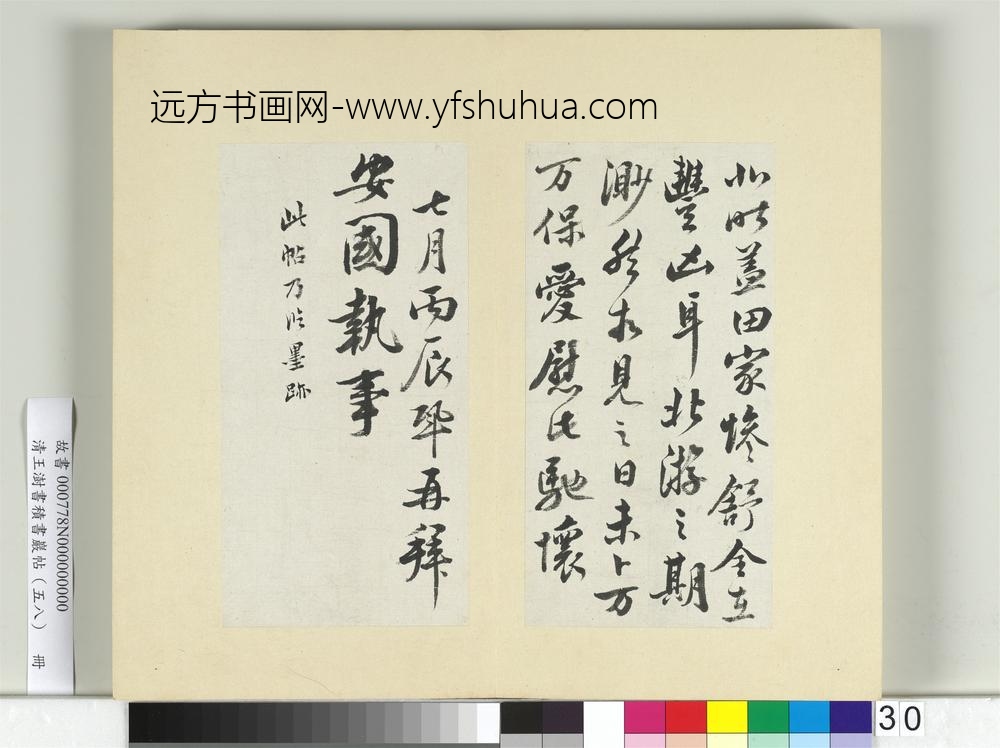 远方书画网-www.yfshuhua.com
此时蓋田家惨舒全在
豐凶耳北游之期
渺然相見之日未卜万
万保愛慰此馳懷
七月丙辰
再拜
安國執事
此帖乃墨跡
故書 000778N000000000
清王澍書積書巖帖（五八） 冊
30